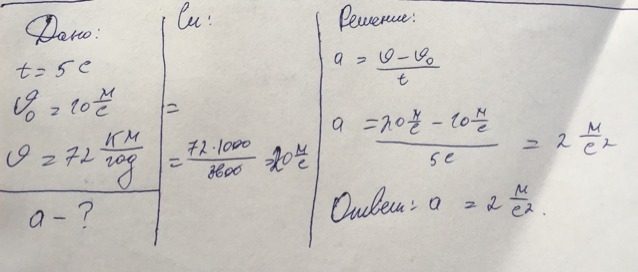 Дано:
t = 5 с
υ₀ = 10 м/с
υ = 72 км/год
a - ?
Си:
=
= 72·1000/3600 = 20 м/с
Решение:
a = υ - υ₀ / t
a = 20 м/с - 10 м/с / 5с = 2 м/с²
Ответ: a = 2 м/с².